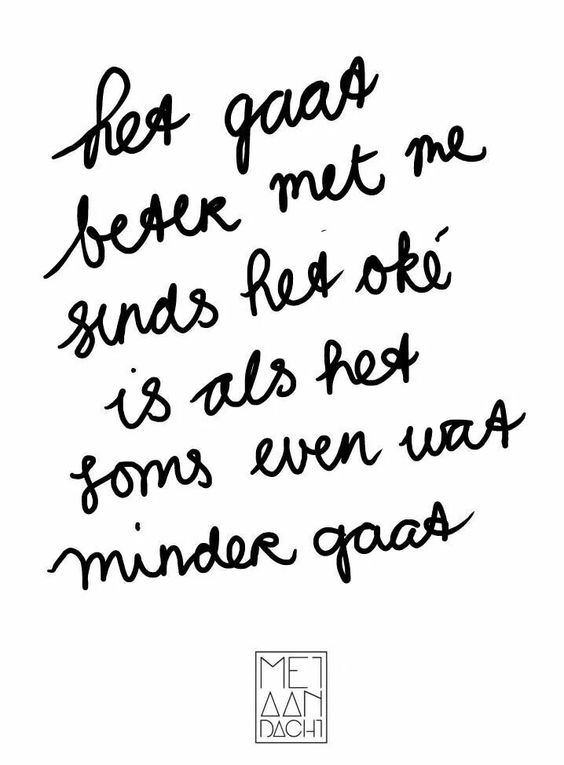 het gaat
beter met me
sinds het oké
is als het
soms even wat
minder gaat
MET
AAN
DACHT